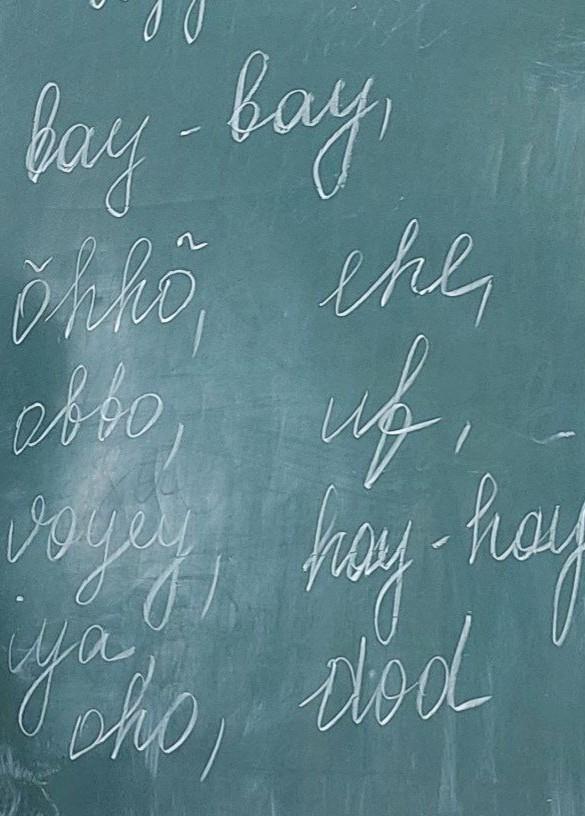 bay - bay,
õhhõ, ehe,
obbo, uf,
voyey, hay - hay
iya,
oho, dod